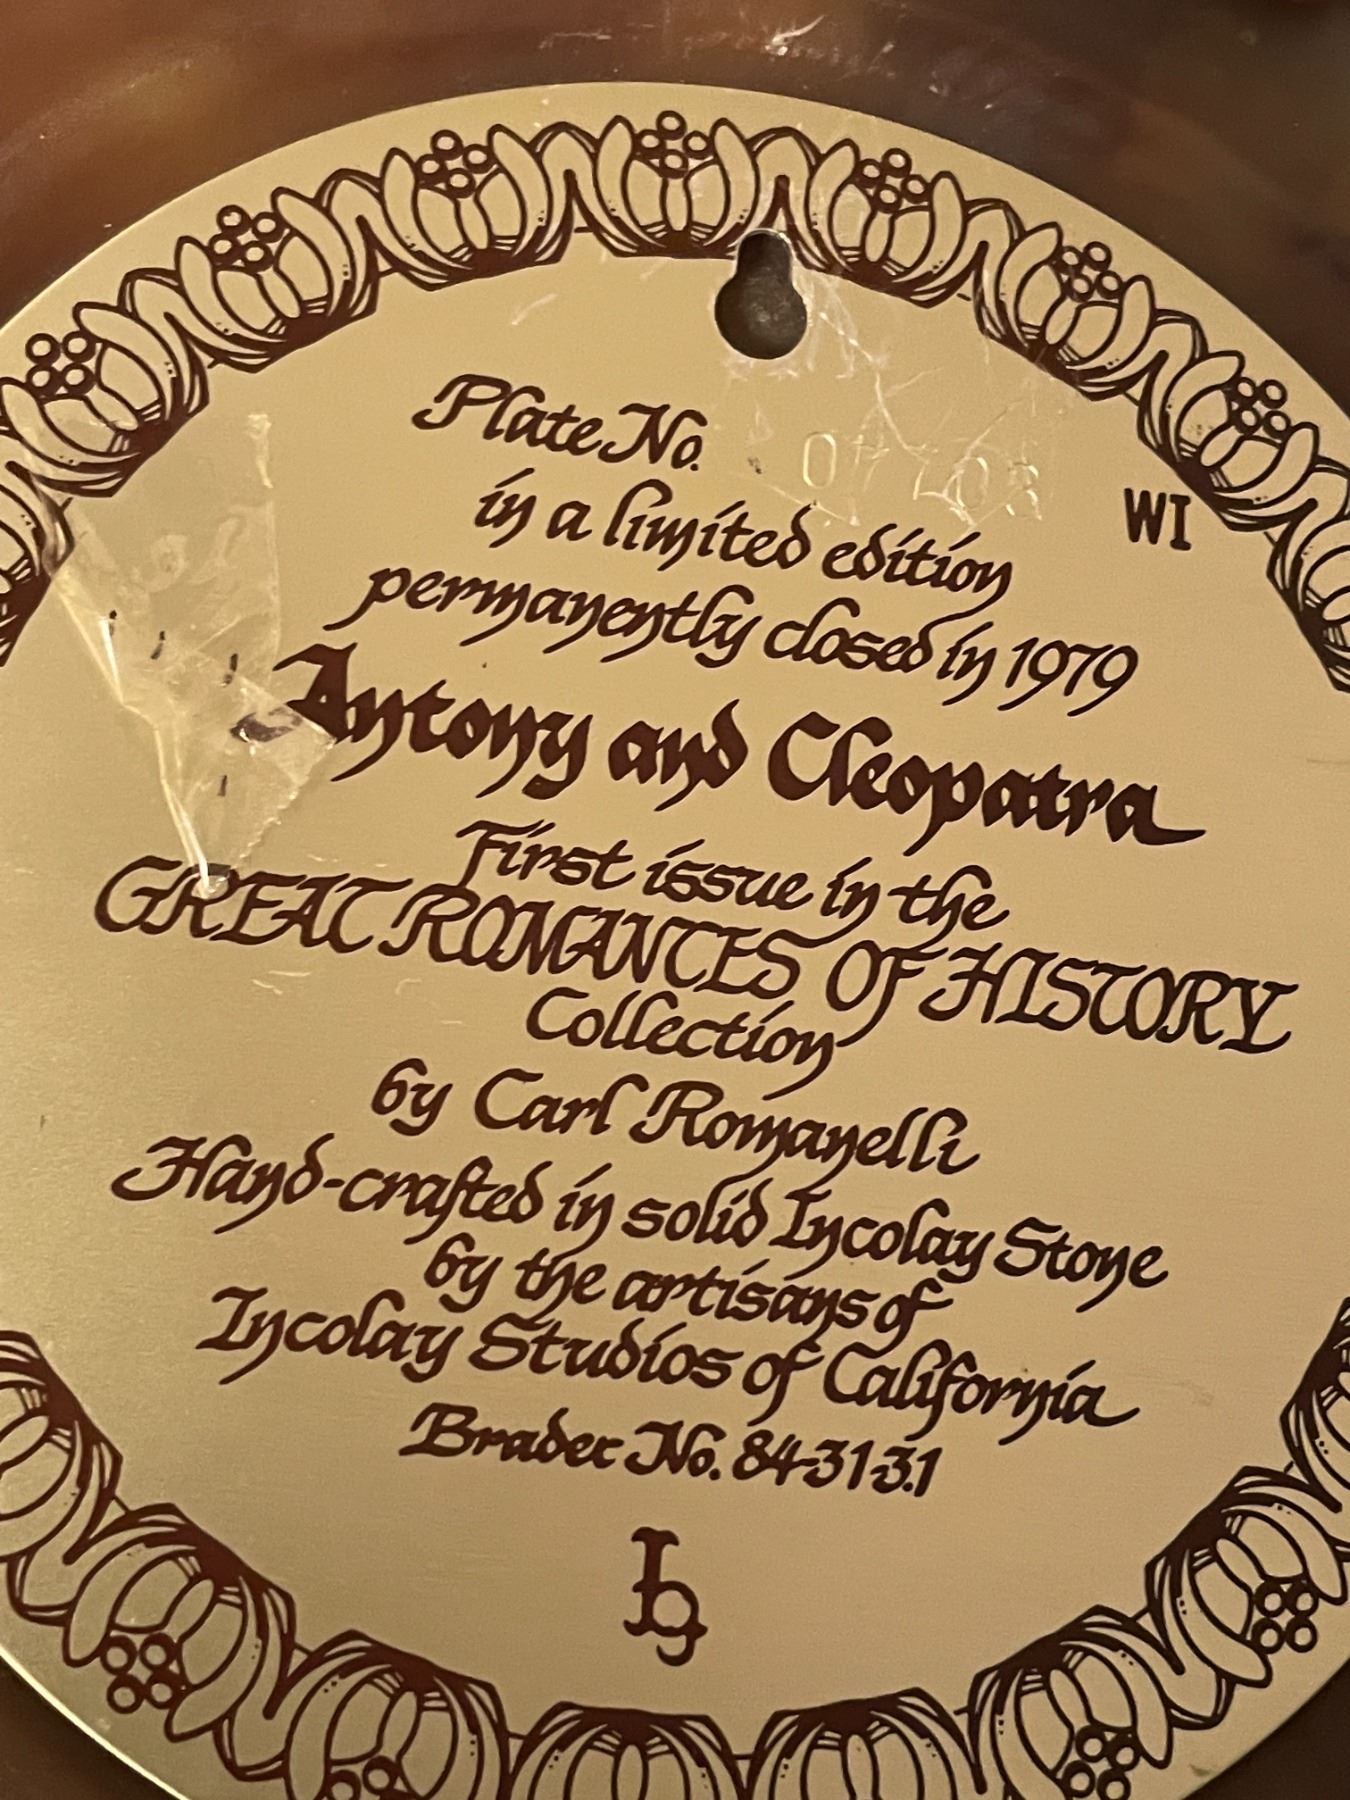 Plate No.
in a limited edition
WI
permanently closed in 1979
Antony and Cleopatra
First issue in the
GREAT ROMANCES OF HISTORY
Collection
by Carl Romanelli
Hand-crafted in solid Incolay Stone
by the artisans of
Incolay Studios of California
Bradex No. 84-31-3.1